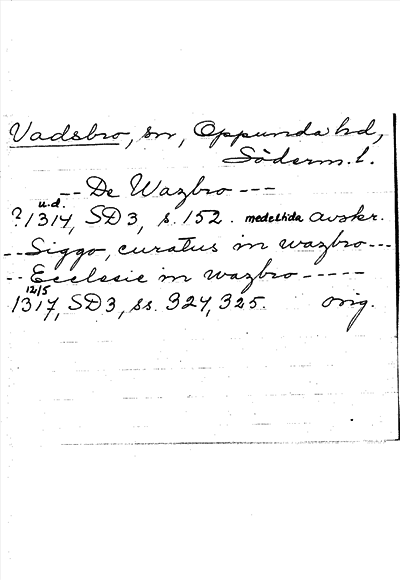 Vadsbro, sn, Oppunda hd,
Söderm. l.
-- De Wazbro ---
u.d.
? 1314, SD 3, s. 152. medeltida avskr.
--- Siggo, curatus in wazbro ---
-- Ecclesie in wazbro -----
12/5
1317, SD 3, ss. 324, 325. orig.